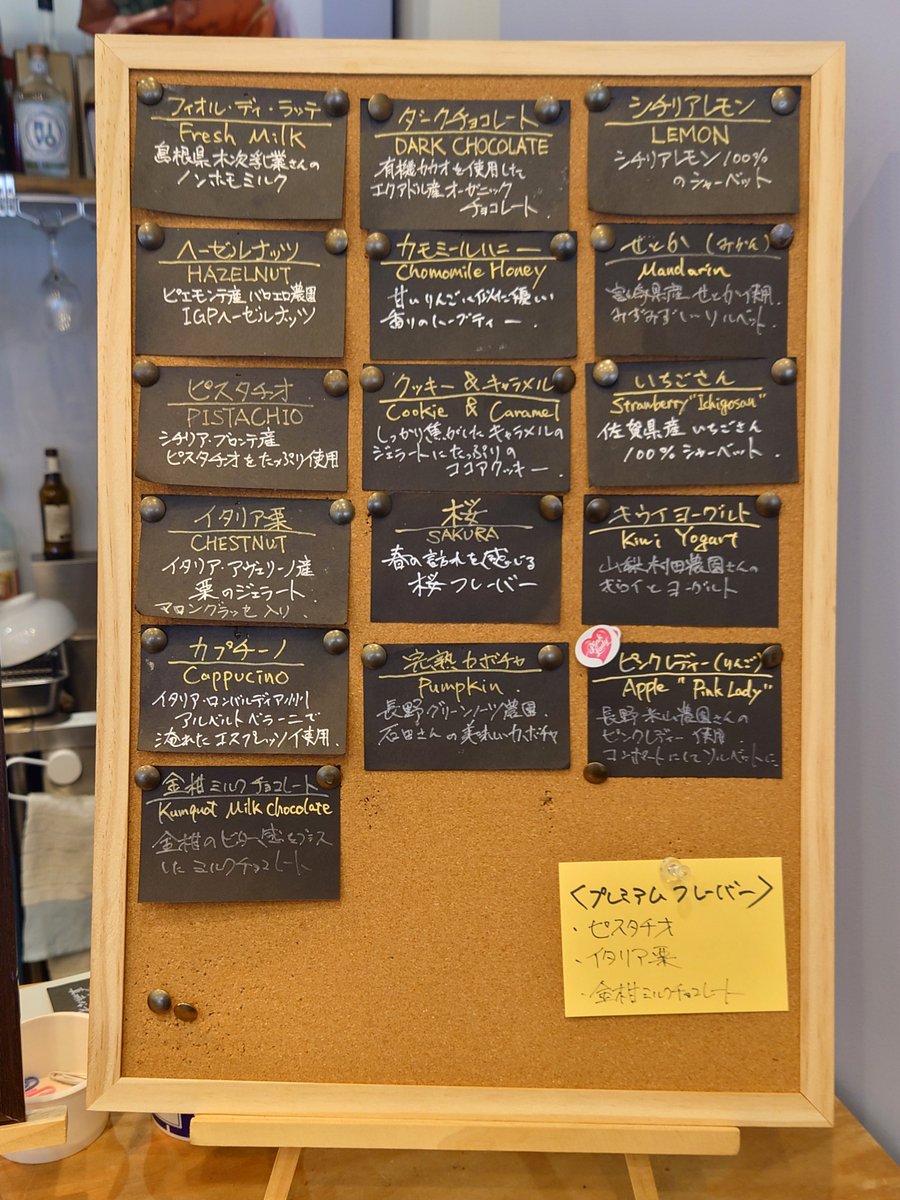 フィオル・ディ・ラッテ
Fresh Milk
島根県木次乳業さんの
ノンホモミルク
ダークチョコレート
DARK CHOCOLATE
有機カカオを使用して
エクアドル産オーガニック
チョコレート
シチリアレモン
LEMON
シチリアレモン100%
のシャーベット
ヘーゼルナッツ
HAZELNUT
ピエモンテ産 パロエロ農園
IGPヘーゼルナッツ
カモミールハニー
Chomomile Honey
甘いりんごに似た優しい
香りのハーブティー.
せとか (みかん)
Mandarin
宮崎県産 せとか使用
みずみずしいソルベット.
ピスタチオ
PISTACHIO
シチリア・ブロンテ産
ピスタチオをたっぷり使用
クッキー & キャラメル
Cookie & Caramel
しっかり焦がしたキャラメルの
ジェラートにたっぷりの
ココアクッキー.
いちごさん
Strawberry "Ichigosan"
佐賀県産 いちごさん
100%シャーベット.
イタリア栗
CHESTNUT
イタリア・アヴェリーノ産
栗のジェラート
マロングラッセ入り.
桜
SAKURA
春の訪れを感じる
桜フレーバー
キウイヨーグルト
Kiwi Yogart
山梨村田農園さんの
キウイとヨーグルト
カプチーノ
Cappucino
イタリア・ロンバルディア州
アルベルトベラーニで
淹れたエスプレッソ使用.
完熟カボチャ
Pumpkin
長野グリーンノーツ農園.
石田さんの美味しいカボチャ
ピンクレディー(りんご)
Apple "Pink Lady"
長野米山農園さんの
ピンクレディー使用
コンポートにしてソルベットに
金柑ミルクチョコレート
Kumquat Milk Chocolate
金柑のビター感をプラス
した ミルクチョコレート
〈プレミアムフレーバー〉
・ピスタチオ
・イタリア栗
・金柑ミルクチョコレート